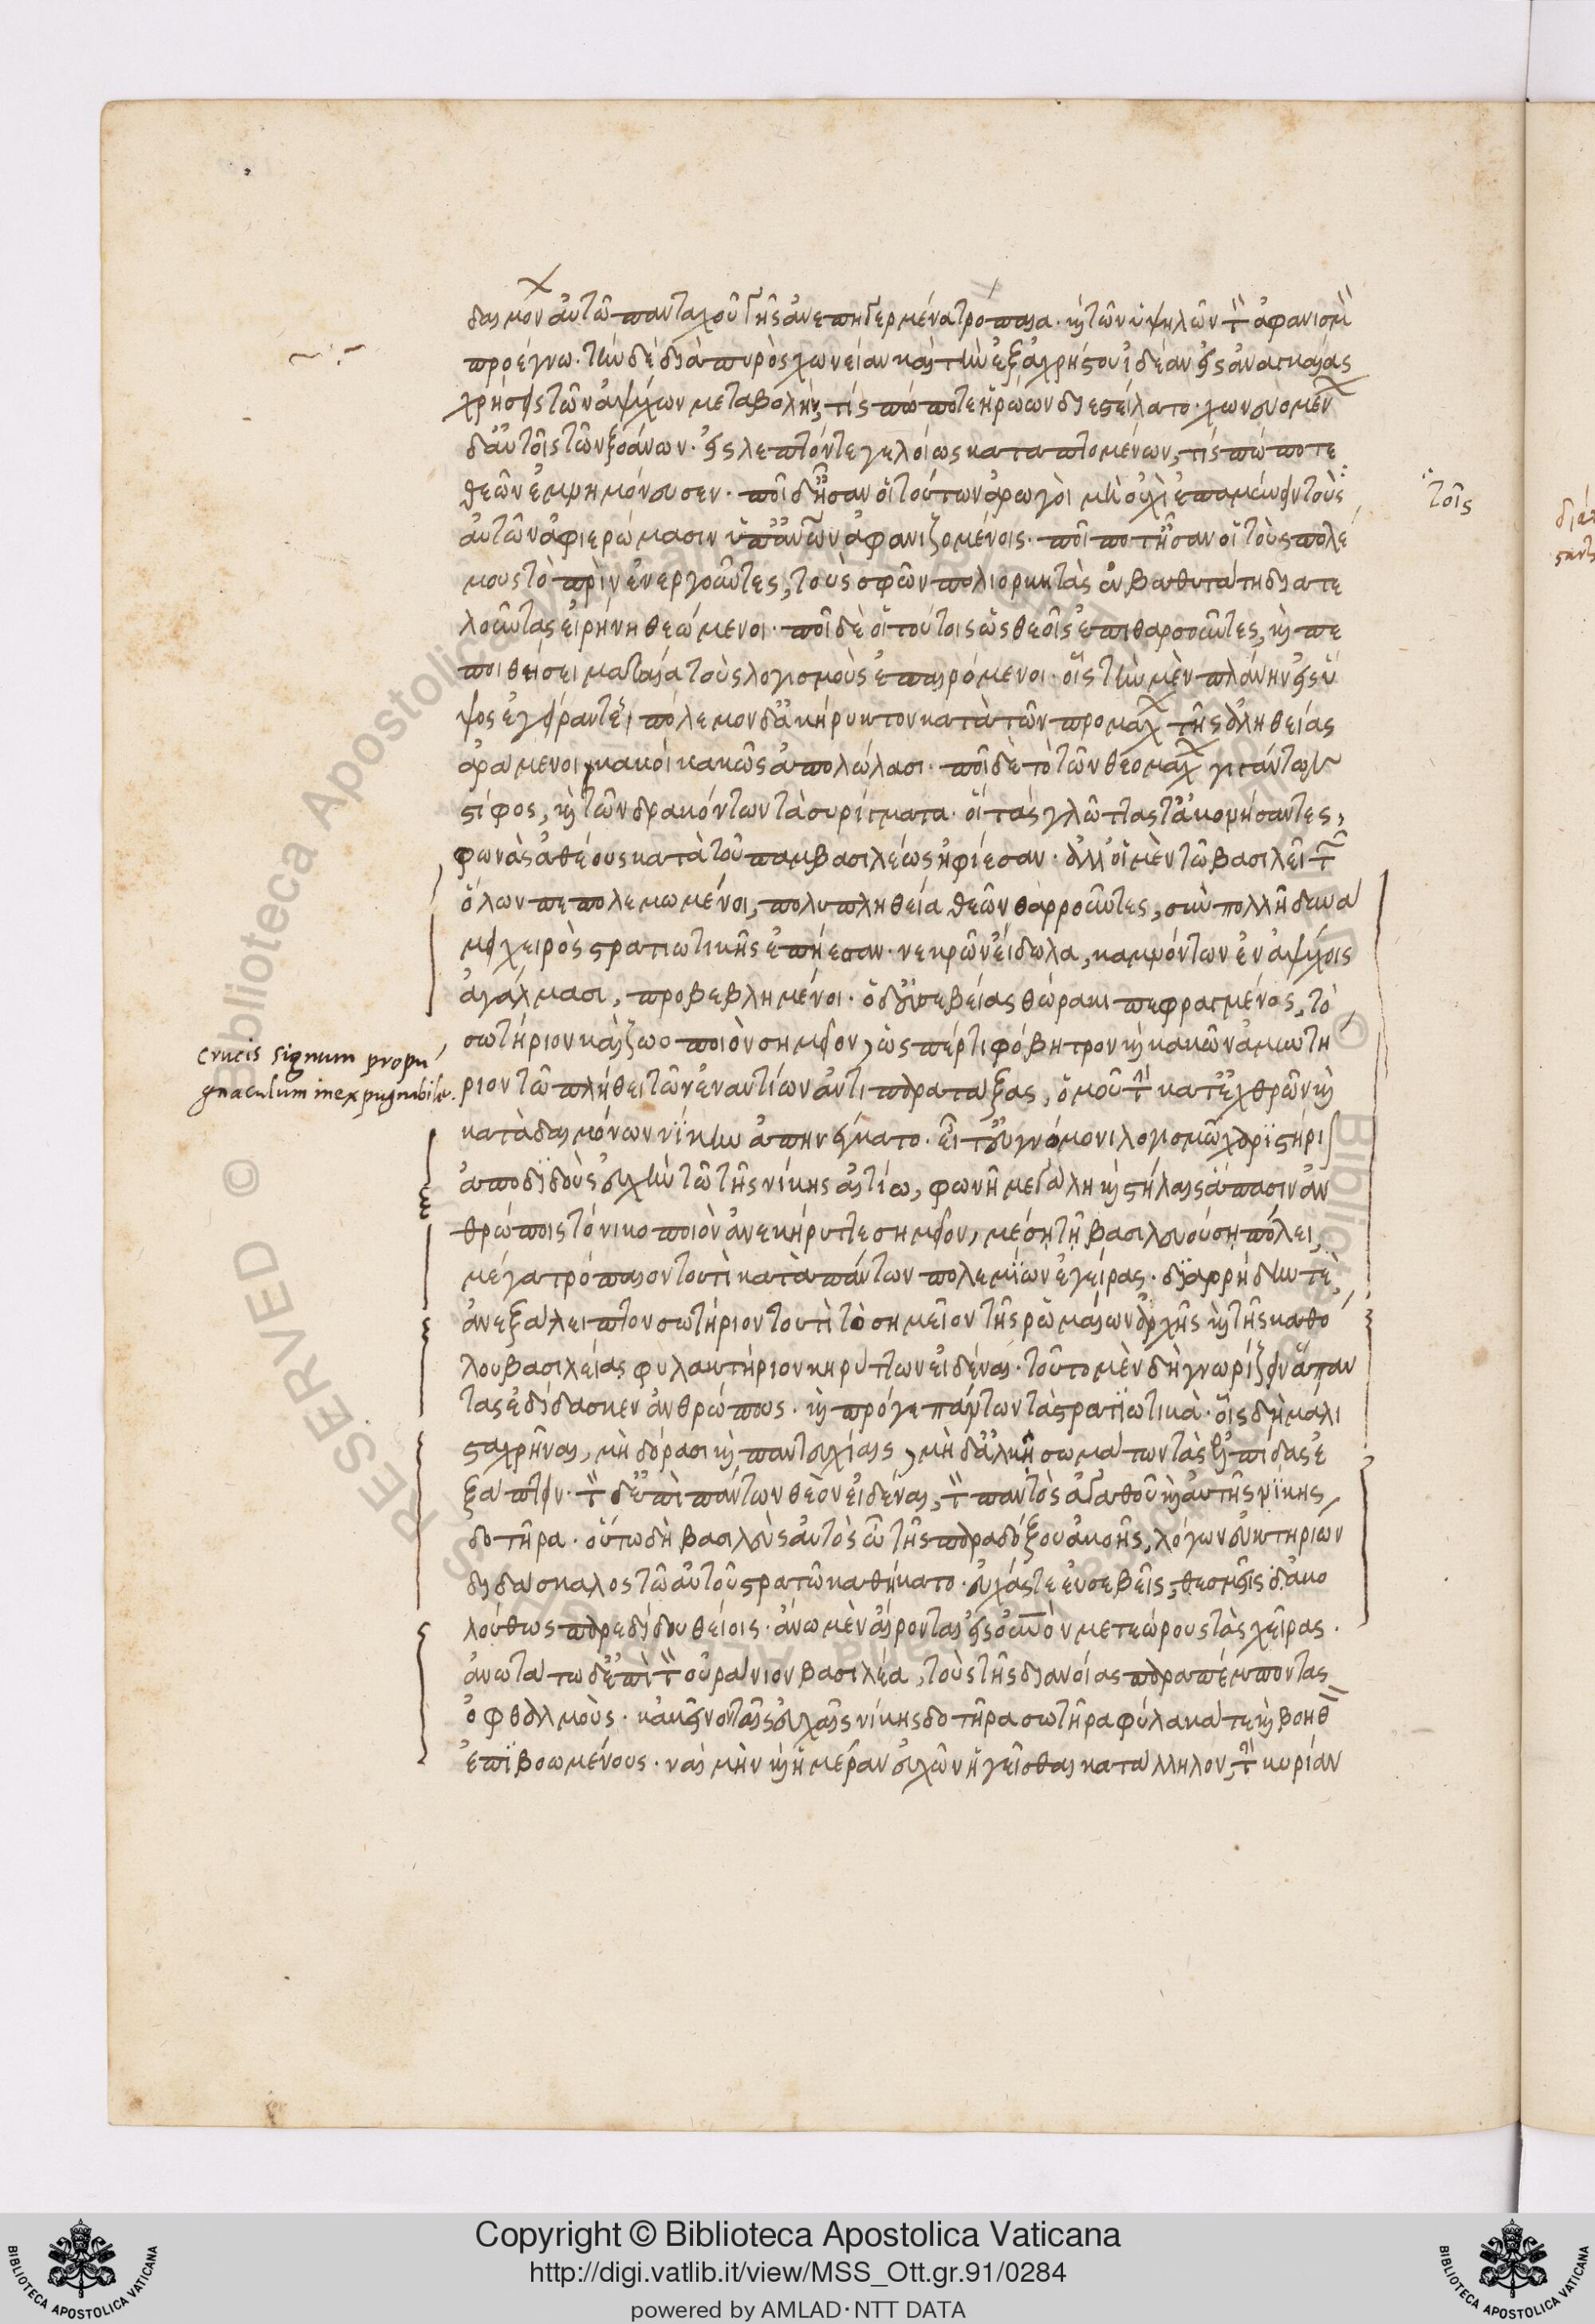 δαιμόν αὐτῶ πανταχοῦ γῆς ἀνεπηγερμένα τρόπαια· καὶ τῶν ὑψηλῶν τὸν ἀφανισμὸν
προέγνω· τὴν δὲ διὰ πυρὸς χωνείαν καὶ τὴν ἐξ ἀχρήστου ἰδέαν εἰς ἀναγκαίας
χρήσεις τῶν ἀψύχων μεταβολὴν, τίς πώποτε ἡρώων διεστείλατο· χωνευομέν
δ' αὐτοῖς τῶν ξοάνων· εἰς λεπτόν τε γελοίως καταπτομένων, τίς πώποτε
θεῶν ἐμνημόνευσεν· ποῖ δῆ ἦσαν οἱ τούτων ἀρωγοὶ μὴ οὐχὶ ἐπαμύνειν τοὺς
αὐτῶν ἀφιερώμασιν ὑπ' ἀνων ἀφανιζομένοις· ποῖ ποτ' ἦσαν οἱ τοὺς πολέ
μους τὸ πρὶν ἐνεργοῦντες, τοὺς σφῶν πολιορκητὰς ἐν βαθυτάτη διατε
λοῦντας εἰρήνη θεώμενοι· ποῖ δὲ οἱ τούτοις ὡς θεοῖς ἐπιθαρσοῦντες, καὶ πε
ποιθήσει ματαία τοὺς λογισμοὺς ἐπαιρόμενοι· οἳ τὴν μὲν πλάνην εἰς ὕ
ψος ἐγείραντες, πόλεμον δ' ἀκήρυκτον κατὰ τῶν προμάχ τῆς ἀληθείας
ἀράμενοι, κακοὶ κακῶς ἀπολώλασι· ποῖ δὲ τὸ τῶν θεομάχ γιγάντων
στίφος, καὶ τῶν δρακόντων τὰ συρίγματα· οἳ τὰς γλώττας τ' ἀκονήσαντες,
φωνὰς ἀθέους κατὰ τοῦ παμβασιλέως ἠφίεσαν· ἀλλ' οἱ μὲν τῶ βασιλεῖ τῶν
ὅλων πεπολεμωμένοι, πολυπληθεία θεῶν θαρροῦντες, σὺν πολλῆ δυνά
μει χειρὸς στρατιωτικῆς ἐπήεσαν· νεκρῶν εἴδωλα, καμόντων ἐν ἀψύχοις
ἀγάλμασι, προβεβλημένοι· ὁ δ' εὐσεβείας θώρακι πεφραγμένος, τὸ
σωτήριον καὶ ζωοποιὸν σημεῖον, ὥσπέρ τι φόβητρον καὶ κακῶν ἀμυντή
ριον τῶ πλήθει τῶν ἐναντίων ἀντιπαρατάξας, ὁμοῦ τὴν κατ' ἐχθρῶν καὶ
κατὰ δαιμόνων νίκην ἀπηνέγκατο· εἶτ' εὐγνώμονι λογισμῶ χαριστήρι
ἀποδιδοὺς εὐχὴν τῶ τῆς νίκης αἰτίω, φωνῆ μεγάλη καὶ στήλαις ἅπασιν ἀν
θρώποις τὸ νικοποιὸν ἀνεκήρυττε σημεῖον, μέση τῆ βασιλευούση πόλει,
μέγα τρόπαιον τουτὶ κατὰ πάντων πολεμίων ἐγείρας· διαρρήδην τὲ
ἀνεξάλειπτον σωτήριον τουτὶ τὸ σημεῖον τῆς ῥωμαίων ἀρχῆς καὶ τῆς καθό
λου βασιλείας φυλακτήριον κηρύττων εἰδέναι· τοῦτο μὲν δὴ γνωρίζειν ἅπαν
τας ἐδίδασκεν ἀνθρώπους· καὶ πρόγε πάντων τὰ στρατιωτικά· οἷς δὴ μάλι
στα χρῆναι, μὴ δόρασι καὶ παντευχίαις, μὴ δ' ἀλκῆ σωμάτων τὰς ἐλπίδας ἐ
ξάπτειν· τὸν δ' ἐπὶ πάντων θεὸν εἰδέναι, τὸν παντὸς ἀγαθοῦ καὶ αὐτῆς νίκης
δοτῆρα· οὕτω δὴ βασιλεὺς αὐτὸς ὢ τῆς παραδόξου ἀκοῆς, λόγων εὐκτηρίων
διδάσκαλος τῶ αὐτοῦ στρατῶ καθήκατο· εὐχάς τε εὐσεβεῖς, θεσμοῖς ἀκο
λούθως παρεδίδου θείοις· ἄνω μὲν αἴροντας εἰς οὐνὸν μετεώρους τὰς χεῖρας·
ἀνωτάτω δ' ἐπὶ τὸν οὐράνιον βασιλέα, τοὺς τῆς διανοίας παραπέμποντας
ὀφθαλμοὺς· κἀκεῖνον ταῖς εὐχαῖς νίκης δοτῆρα σωτῆρα φύλακά τε καὶ βοηθ
ἐπιβοωμένους· ναὶ μὴν καὶ ἡμέραν εὐχῶν ἡγεῖσθαι κατάλληλον, τὴν κυρίαν
τοῖς
crucis signum propu
gnaculum inexpugnabile.
Copyright © Biblioteca Apostolica Vaticana
http://digi.vatlib.it/view/MSS_Ott.gr.91/0284
powered by AMLAD·NTT DATA
BIBLIOTECA APOSTOLICA VATICANA
BIBLIOTECA APOSTOLICA VATICANA